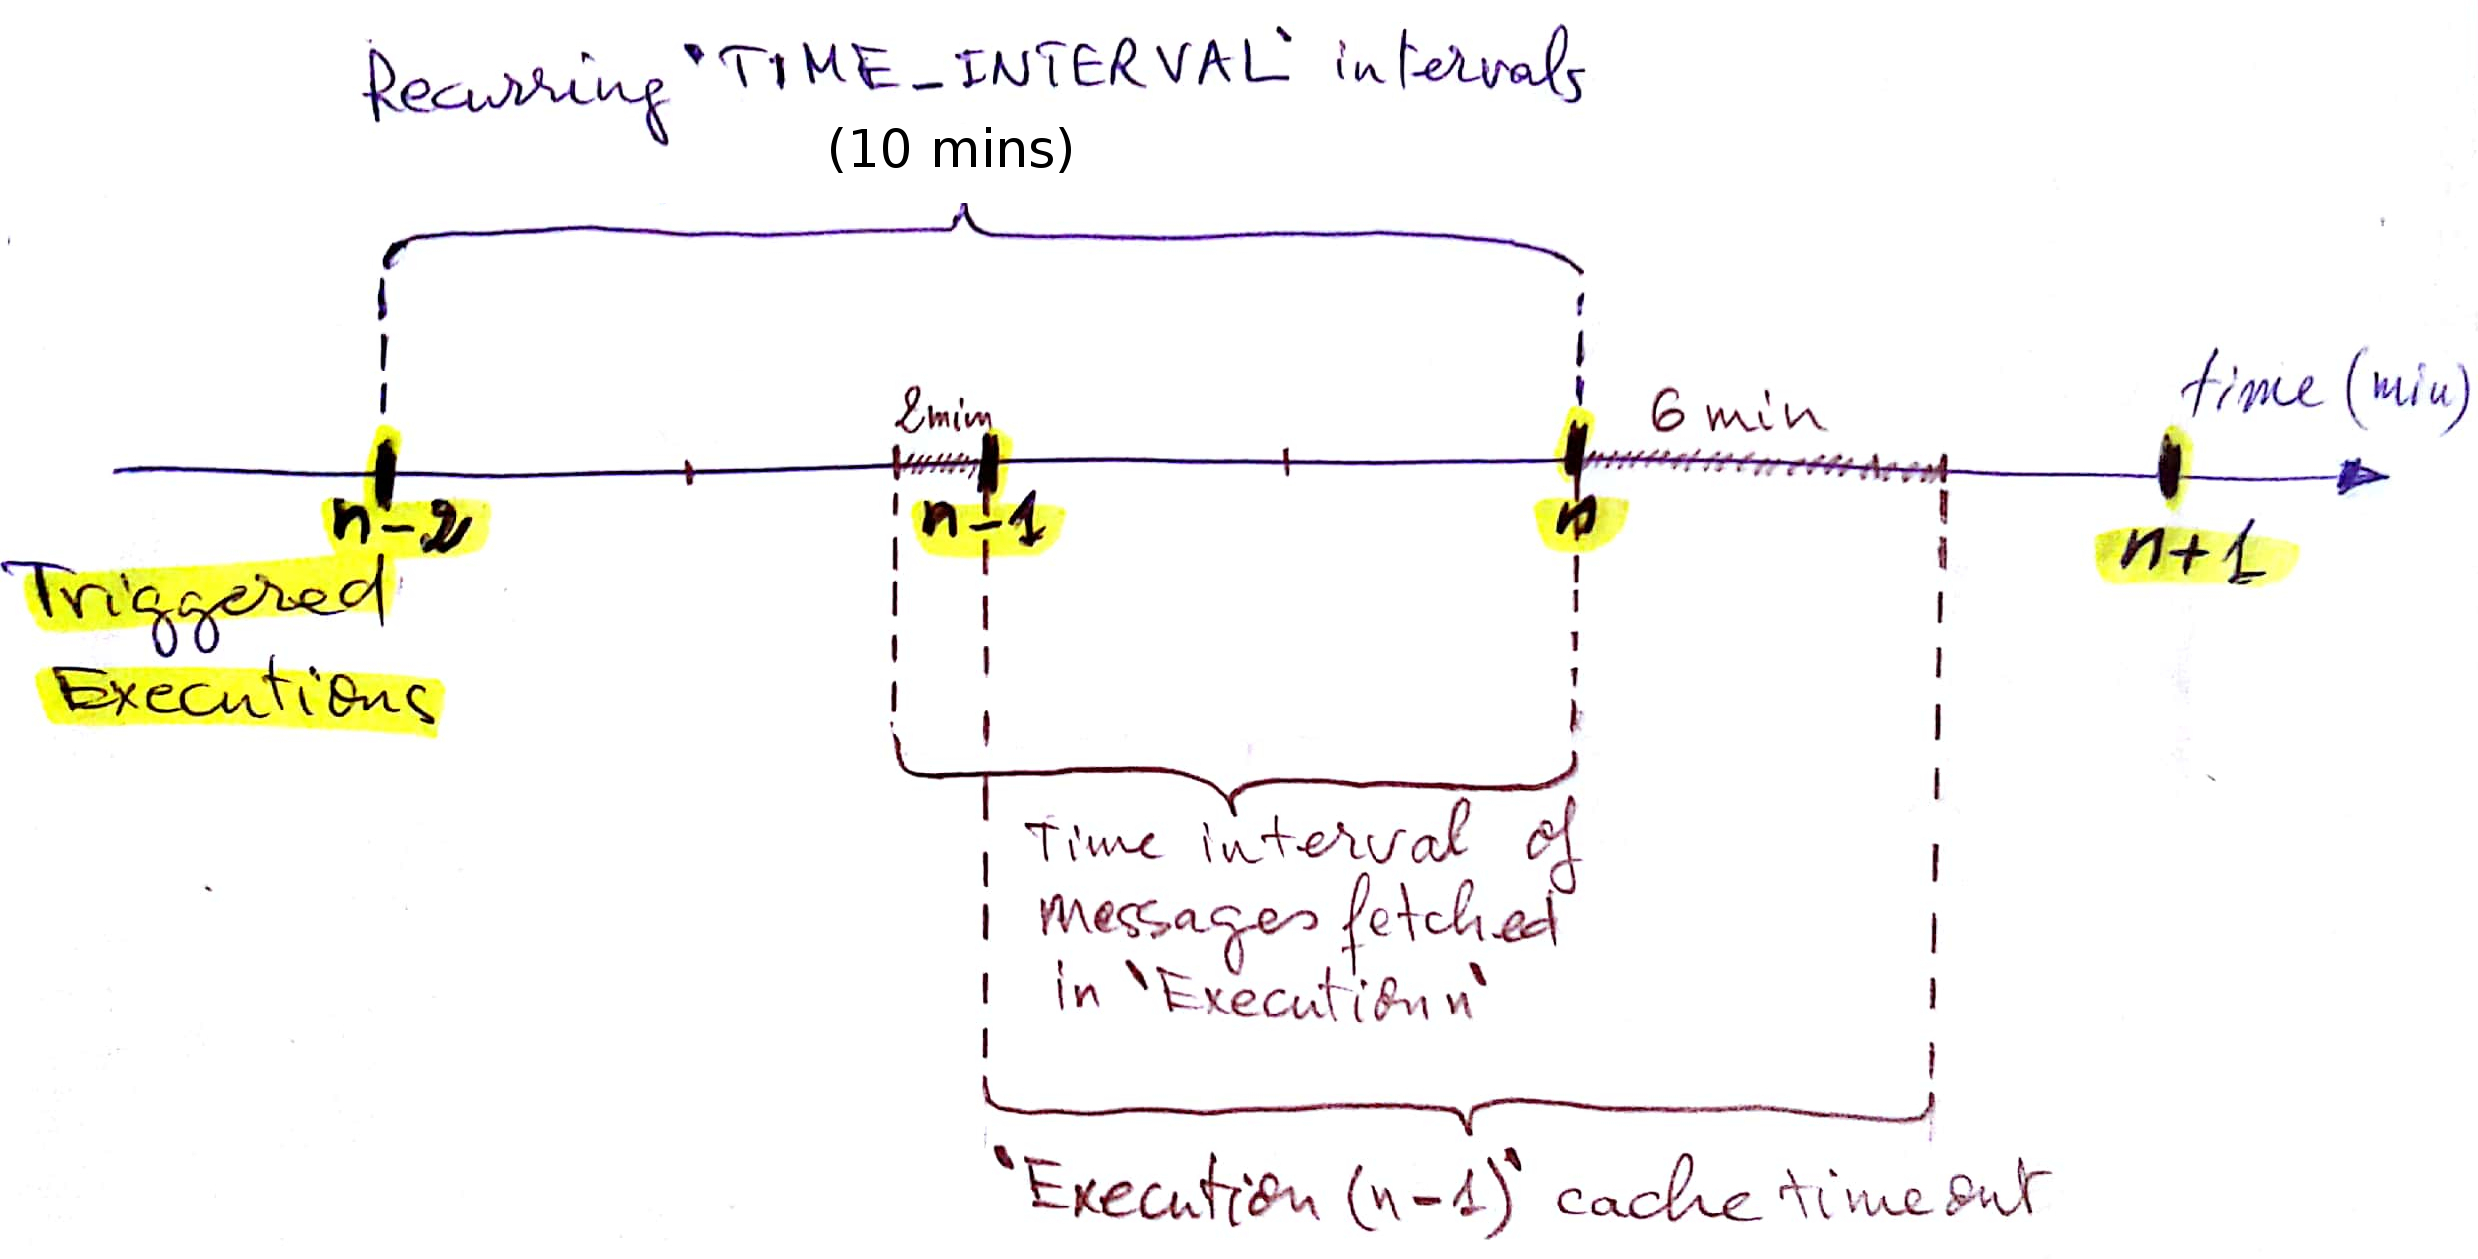 Recurring `TIME_INTERVAL` intervals
(10 mins)
2min
6 min
time (min)
n-2
n-1
n
n+1
Triggered
Executions
Time interval of
messages fetched
in `Execution n`
`Execution (n-1)` cache timeout